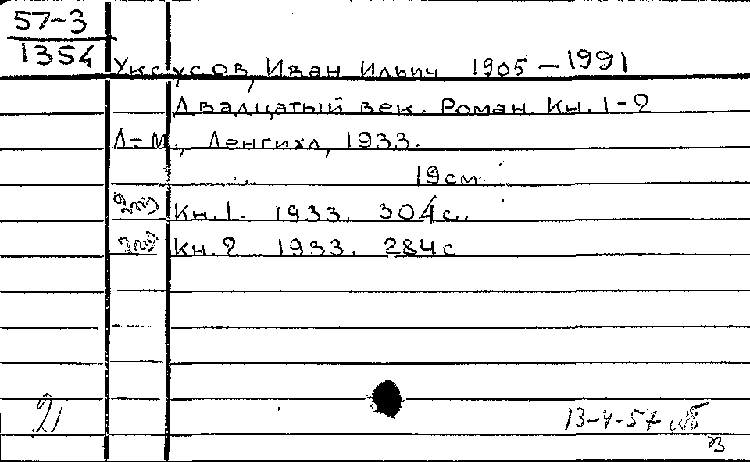 57-3
1354
Уксусов, Иван Ильич 1905-1991
Двадцатый век. Роман. Кн. 1-2
Л-М., Ленгихл, 1933.
19см
Кн.1. 1933. 304с.
Кн.2 1933. 284с
2)
13-4-57